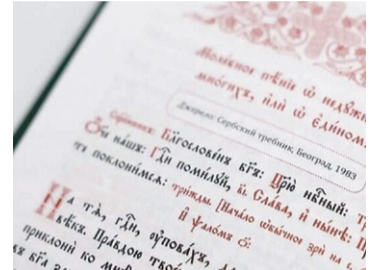 Молебное пѣнїе ѡ недꙋжн
многихъ, или ѡ единомъ
Джерело: Сербский требник, Београд, 1983
Сщ҃енникъ: Бл҃гословенъ бг҃ъ: Цр҃ю нб҃ный:
Ѻ҃ч҃е нашъ: Гд҃и помилꙋй, в҃і. Слава, и нынѣ:
ти поклонимсѧ: трижды [Начало ѡбычное зри на с
и ѱаломъ о҃:
На тѧ, гд҃и, ᲂуповахъ, да
вѣки. Правдою твоею
приклони ко мн
бг҃а за